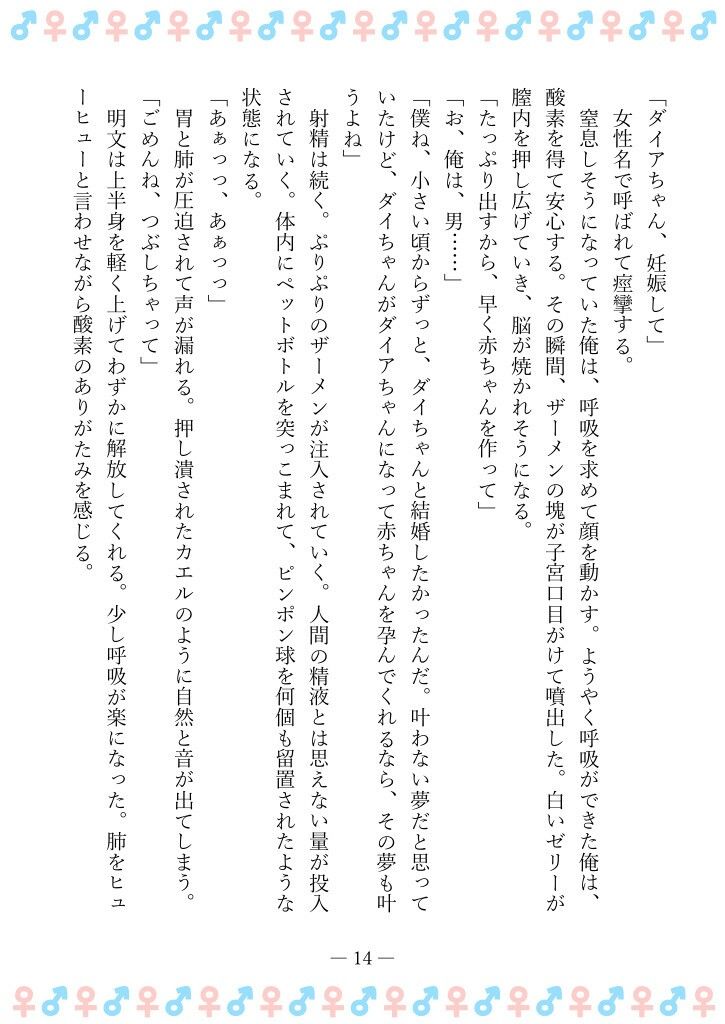 「ダイアちゃん、妊娠して」
女性名で呼ばれて痙攣する。
窒息しそうになっていた俺は、呼吸を求めて顔を動かす。ようやく呼吸ができた俺は、
酸素を得て安心する。その瞬間、ザーメンの塊が子宮口目がけて噴出した。白いゼリーが
膣内を押し広げていき、脳が焼かれそうになる。
「たっぷり出すから、早く赤ちゃんを作って」
「お、俺は、男……」
「僕ね、小さい頃からずっと、ダイちゃんと結婚したかったんだ。叶わない夢だと思って
いたけど、ダイちゃんがダイアちゃんになって赤ちゃんを孕んでくれるなら、その夢も叶
うよね」
射精は続く。ぷりぷりのザーメンが注入されていく。人間の精液とは思えない量が投入
されていく。体内にペットボトルを突っこまれて、ピンポン球を何個も留置されたような
状態になる。
「あぁっっ、あぁっっ」
胃と肺が圧迫されて声が漏れる。押し潰されたカエルのように自然と音が出てしまう。
「ごめんね、つぶしちゃって」
明文は上半身を軽く上げてわずかに解放してくれる。少し呼吸が楽になった。肺をヒュ
ーヒューと言わせながら酸素のありがたみを感じる。
— 14 —